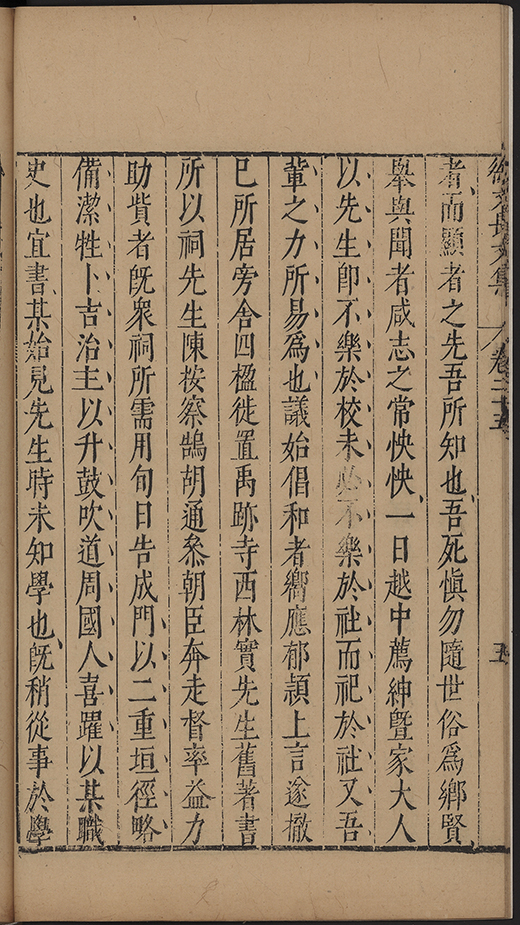 徐文長文集 卷二十五 五
者而顯者之先吾所知也吾死愼勿隨世俗爲鄉賢
舉與聞者咸志之常怏怏一日越中薦紳曁家大人
以先生卽不樂於校未必不樂於社而祀於社又吾
輩之力所易爲也議始倡和者嚮應郁潁上言遂撤
已所居旁舍四楹徙置禹跡寺西林實先生舊著書
所以祠先生陳按察鵠胡通叅朝臣奔走督率益力
助貲者旣衆祠所需用旬日告成門以二重垣徑略
備潔牲卜吉治主以升鼓吹道周國人喜躍以某職
史也宜書某始見先生時未知學也旣稍從事於學